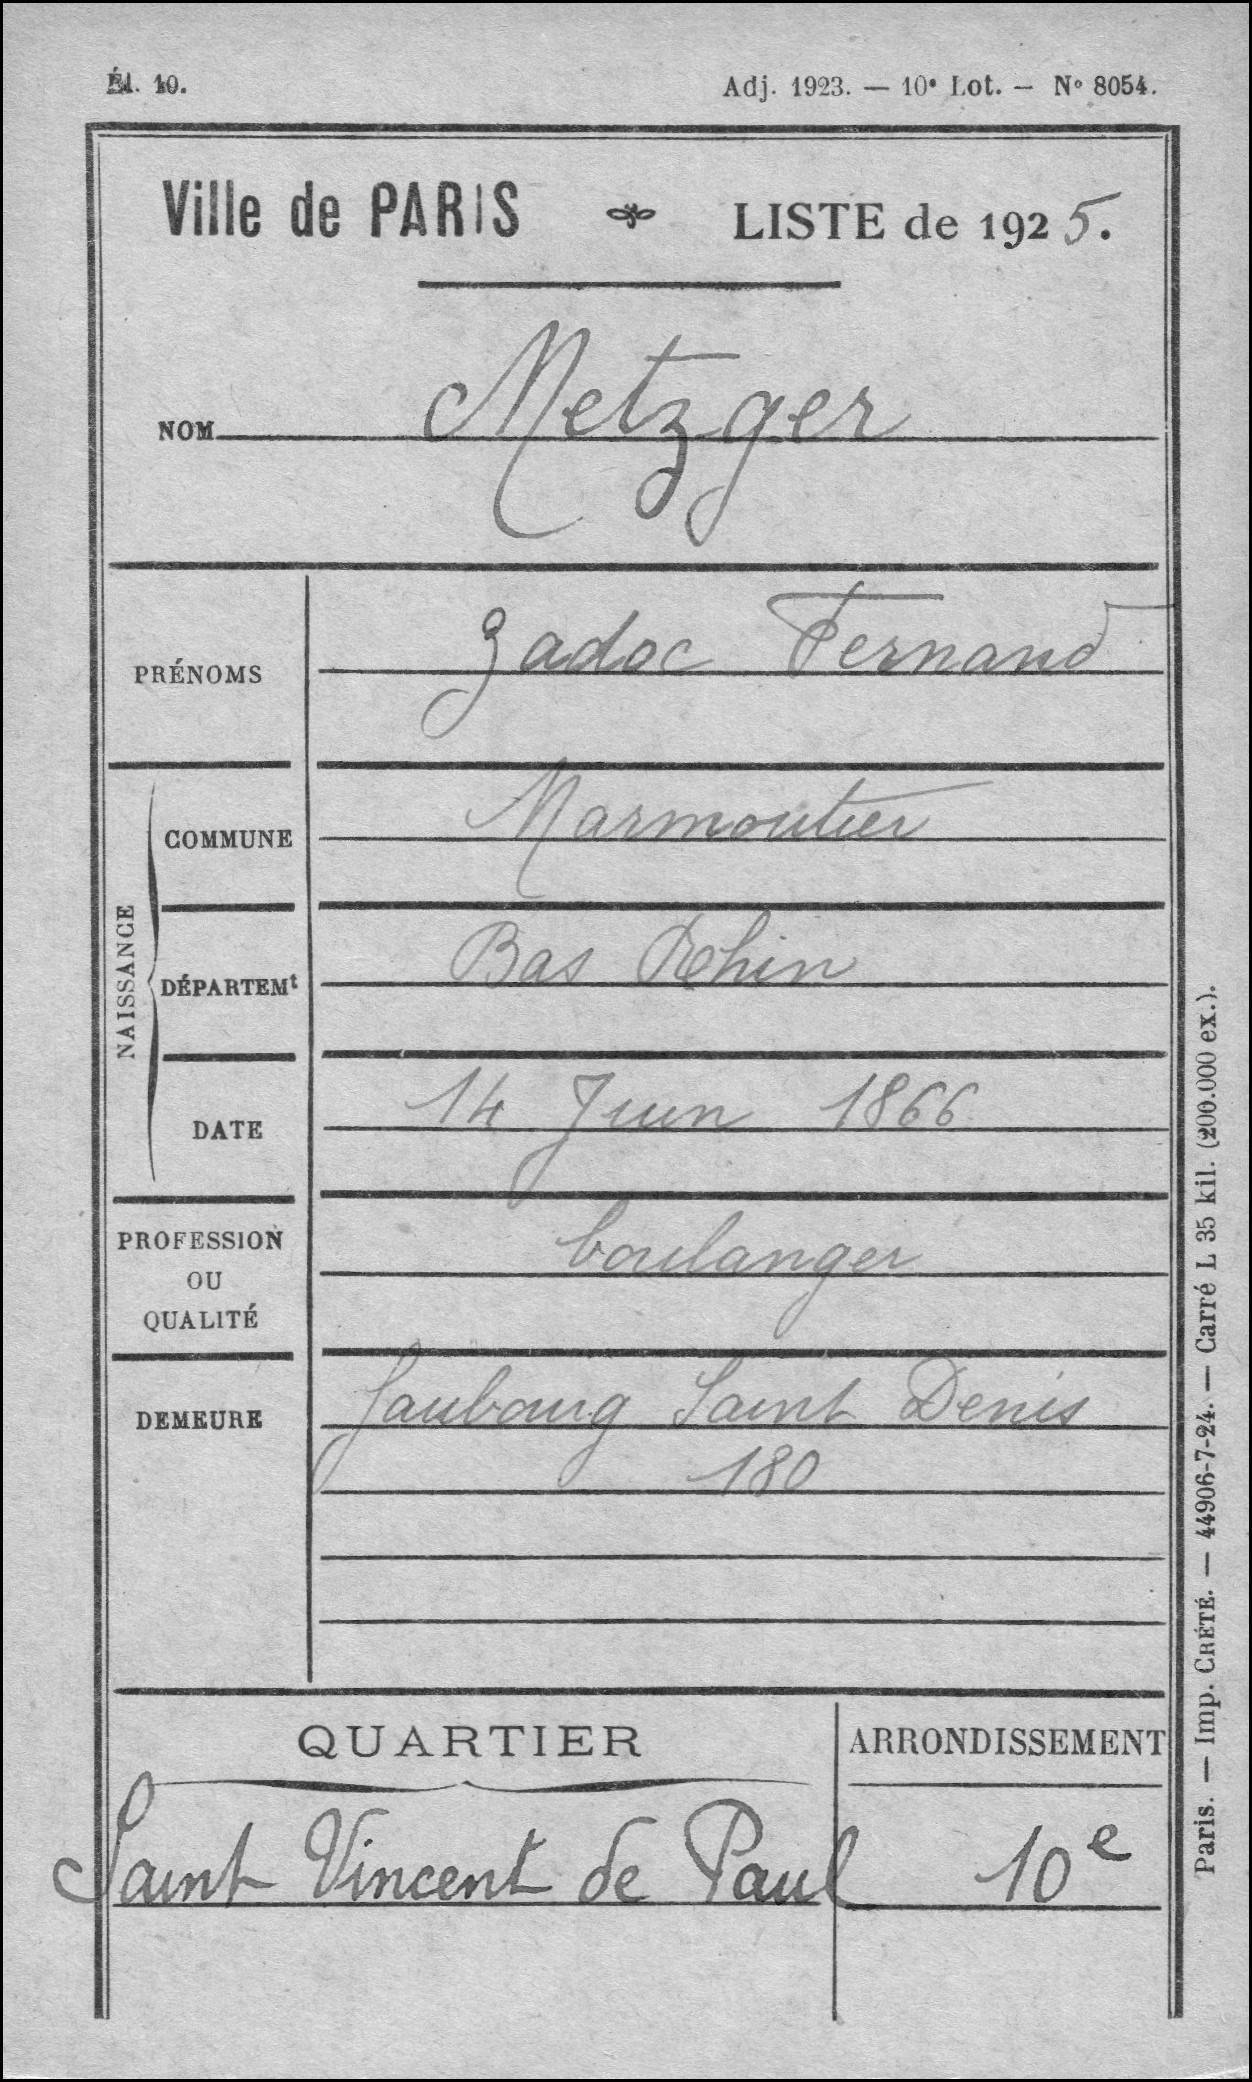 Él. 10.
Adj. 1923. — 10e Lot. — No 8054.
Ville de PARIS LISTE de 1925.
NOM Metzger
PRÉNOMS Zadoc Fernand
NAISSANCE
COMMUNE Marmoutier
DÉPARTEMt Bas Rhin
DATE 14 Juin 1866
PROFESSION
OU
QUALITÉ
boulanger
DEMEURE faubourg Saint Denis
180
QUARTIER
Saint Vincent de Paul
ARRONDISSEMENT
10e
Paris. — Imp. CRÉTÉ. — 44906-7-24. — Carré L 35 kil. (200.000 ex.).